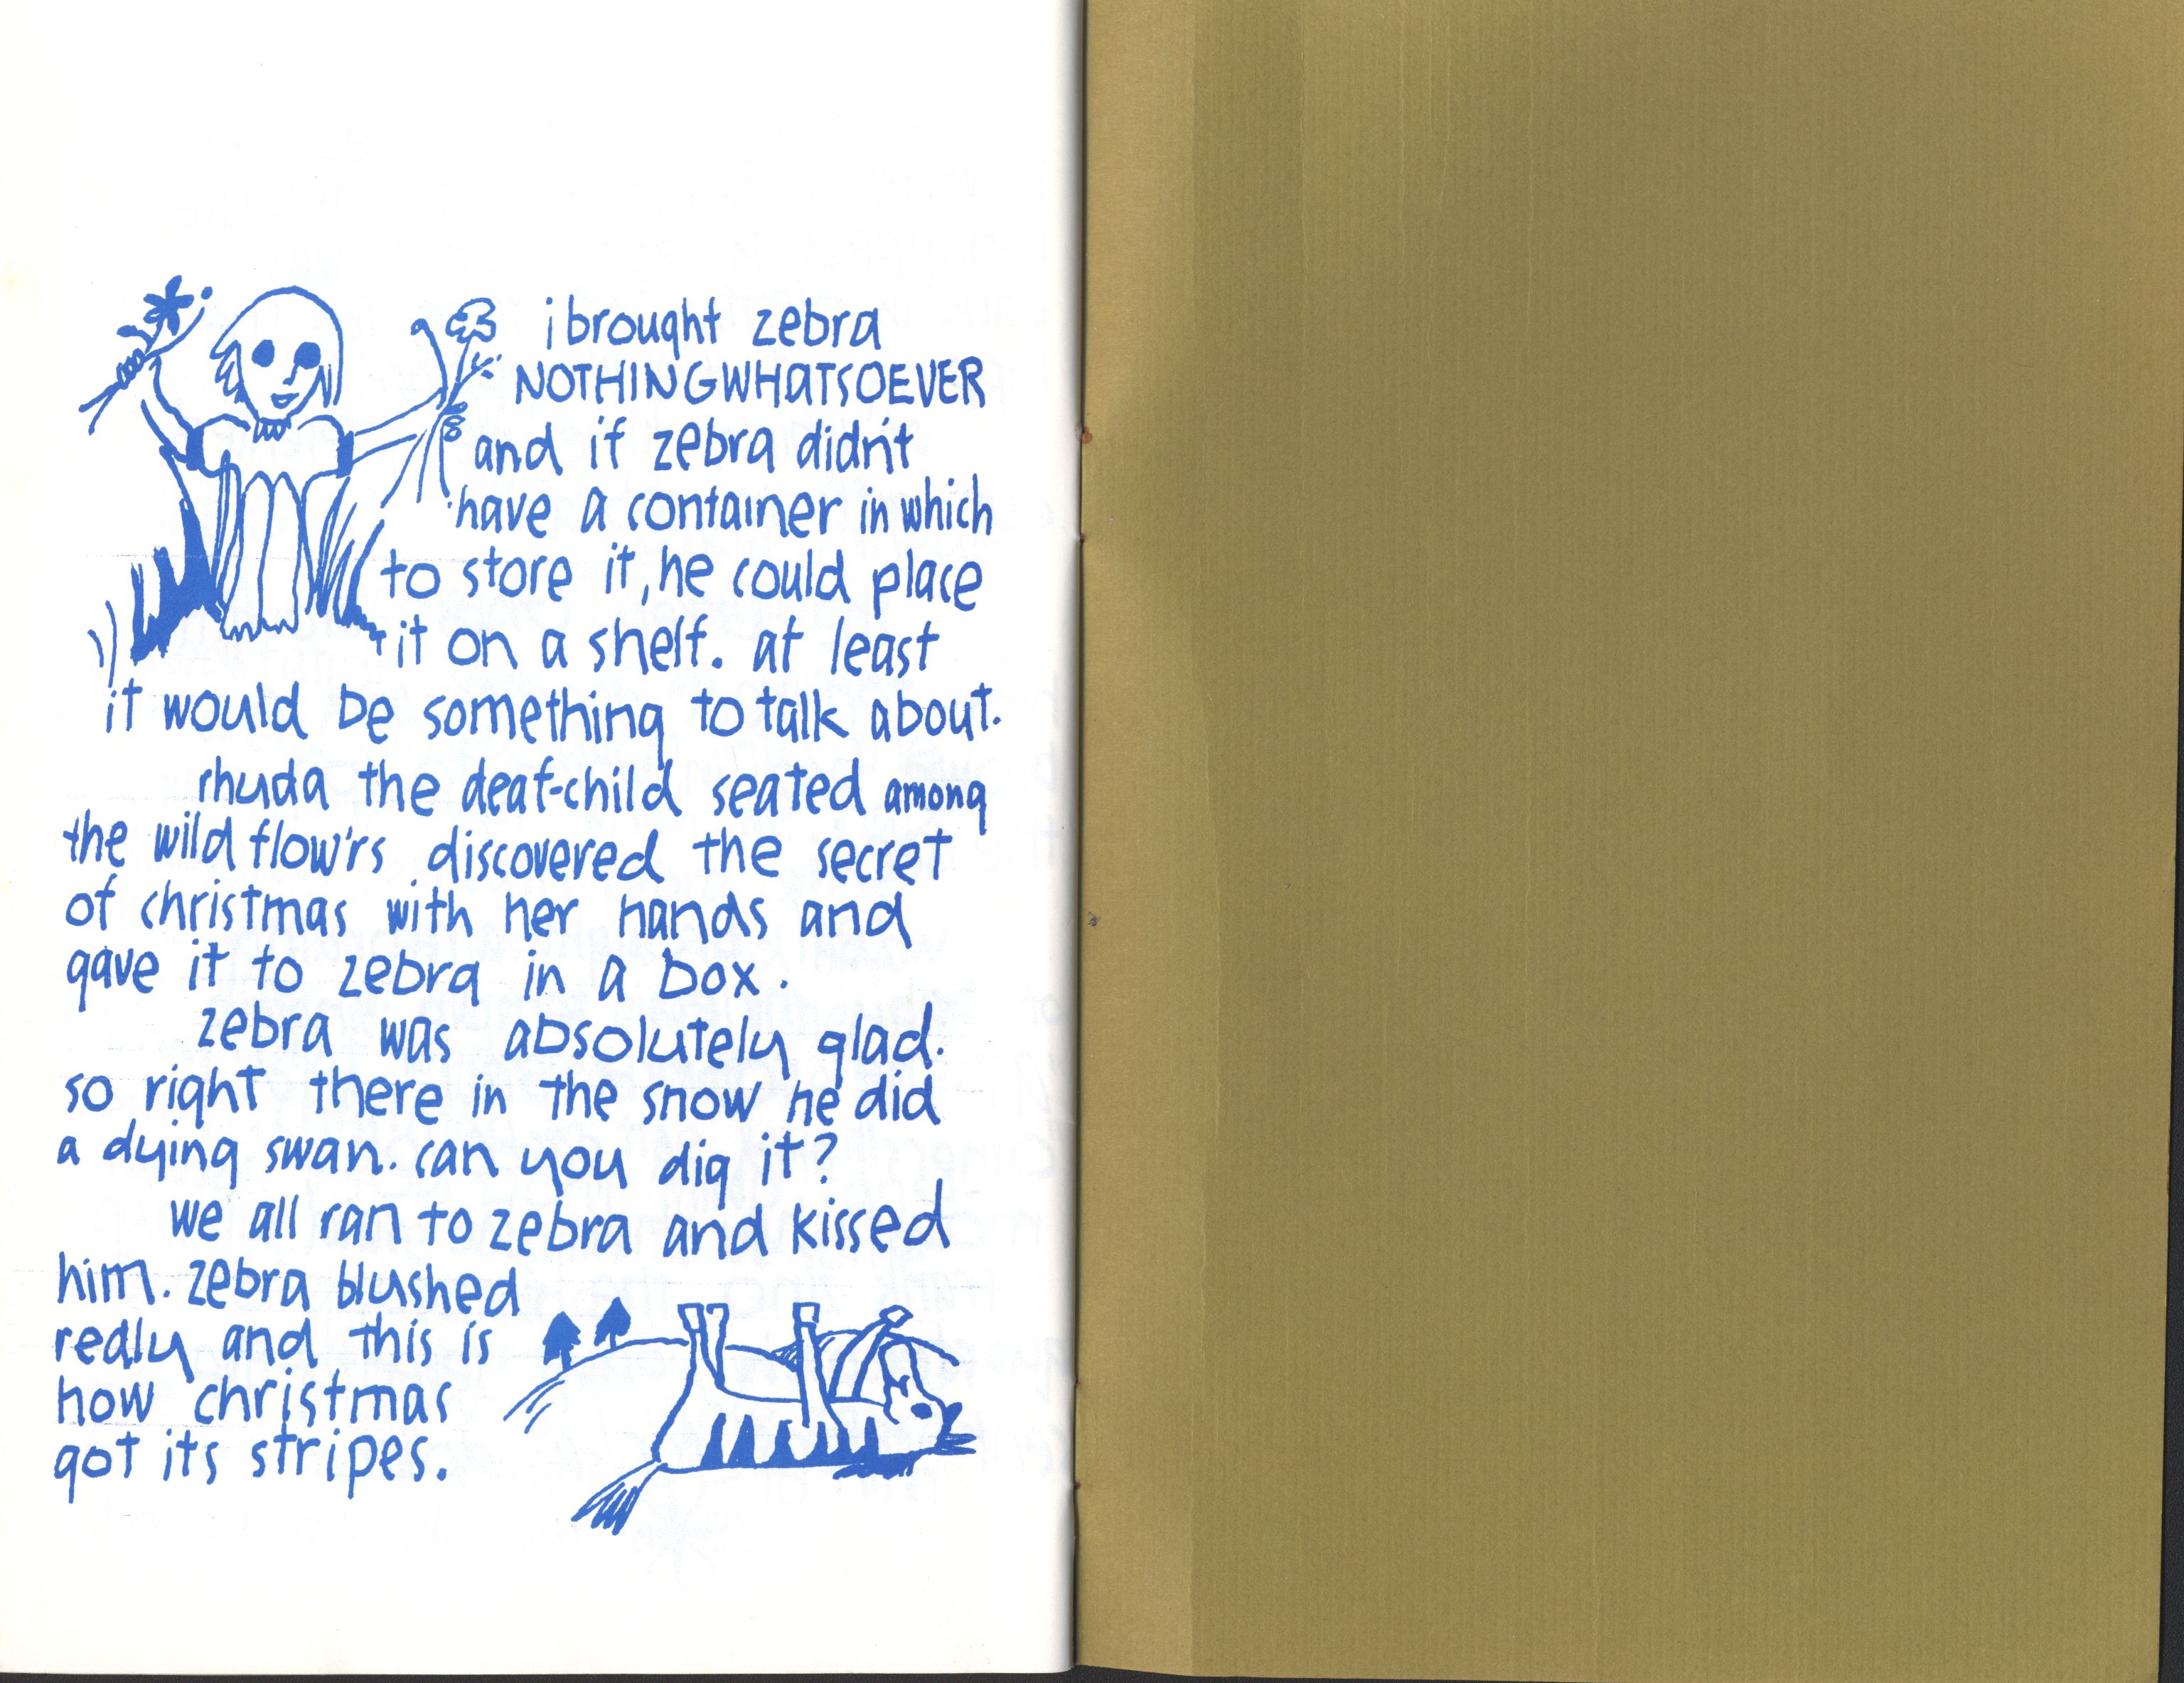 i brought zebra
NOTHINGWHATSOEVER
and if zebra didn't
have a container in which
to store it, he could place
it on a shelf. at least
it would be something to talk about.
rhuda the deaf-child seated among
the wild flow'rs discovered the secret
of christmas with her hands and
gave it to zebra in a box.
zebra was absolutely glad.
so right there in the snow he did
a dying swan. can you dig it?
we all ran to zebra and kissed
him. zebra blushed
redly and this is
how christmas
got its stripes.